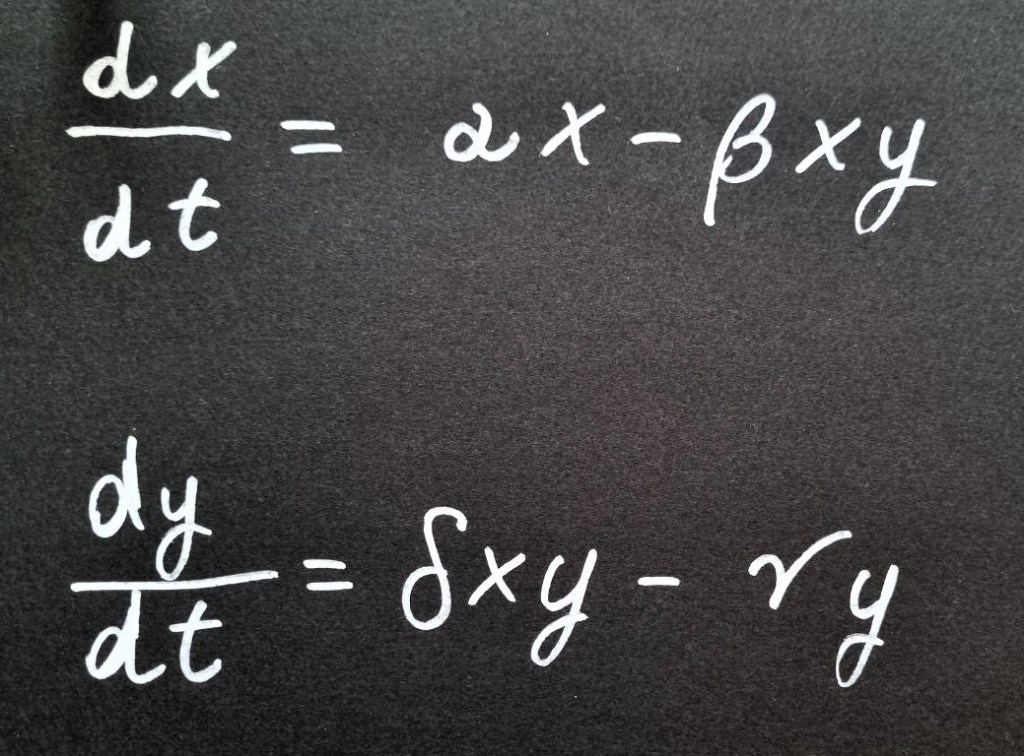 dx/dt = αx - βxy
dy/dt = δxy - γy